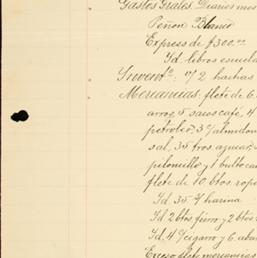 Gastos Grales. Diarios mes
Peñon Blanco
Express de $300.00
Id. libros escuela
Invent°. 1/2 hachas
Mercancías, flete de 6
arroz, 5 sacos café, 4
petroleo, 3 c/ almidon
sal, 35 tros azucar,
piloncillo y 1 bulto ca
flete de 10 btos. ropa
Id. 35 s/ harina
Id. 2 btos. fierro y 2 btos.
Id. 4 c/ cigarro y 6 aba
Exceso flete mercancias